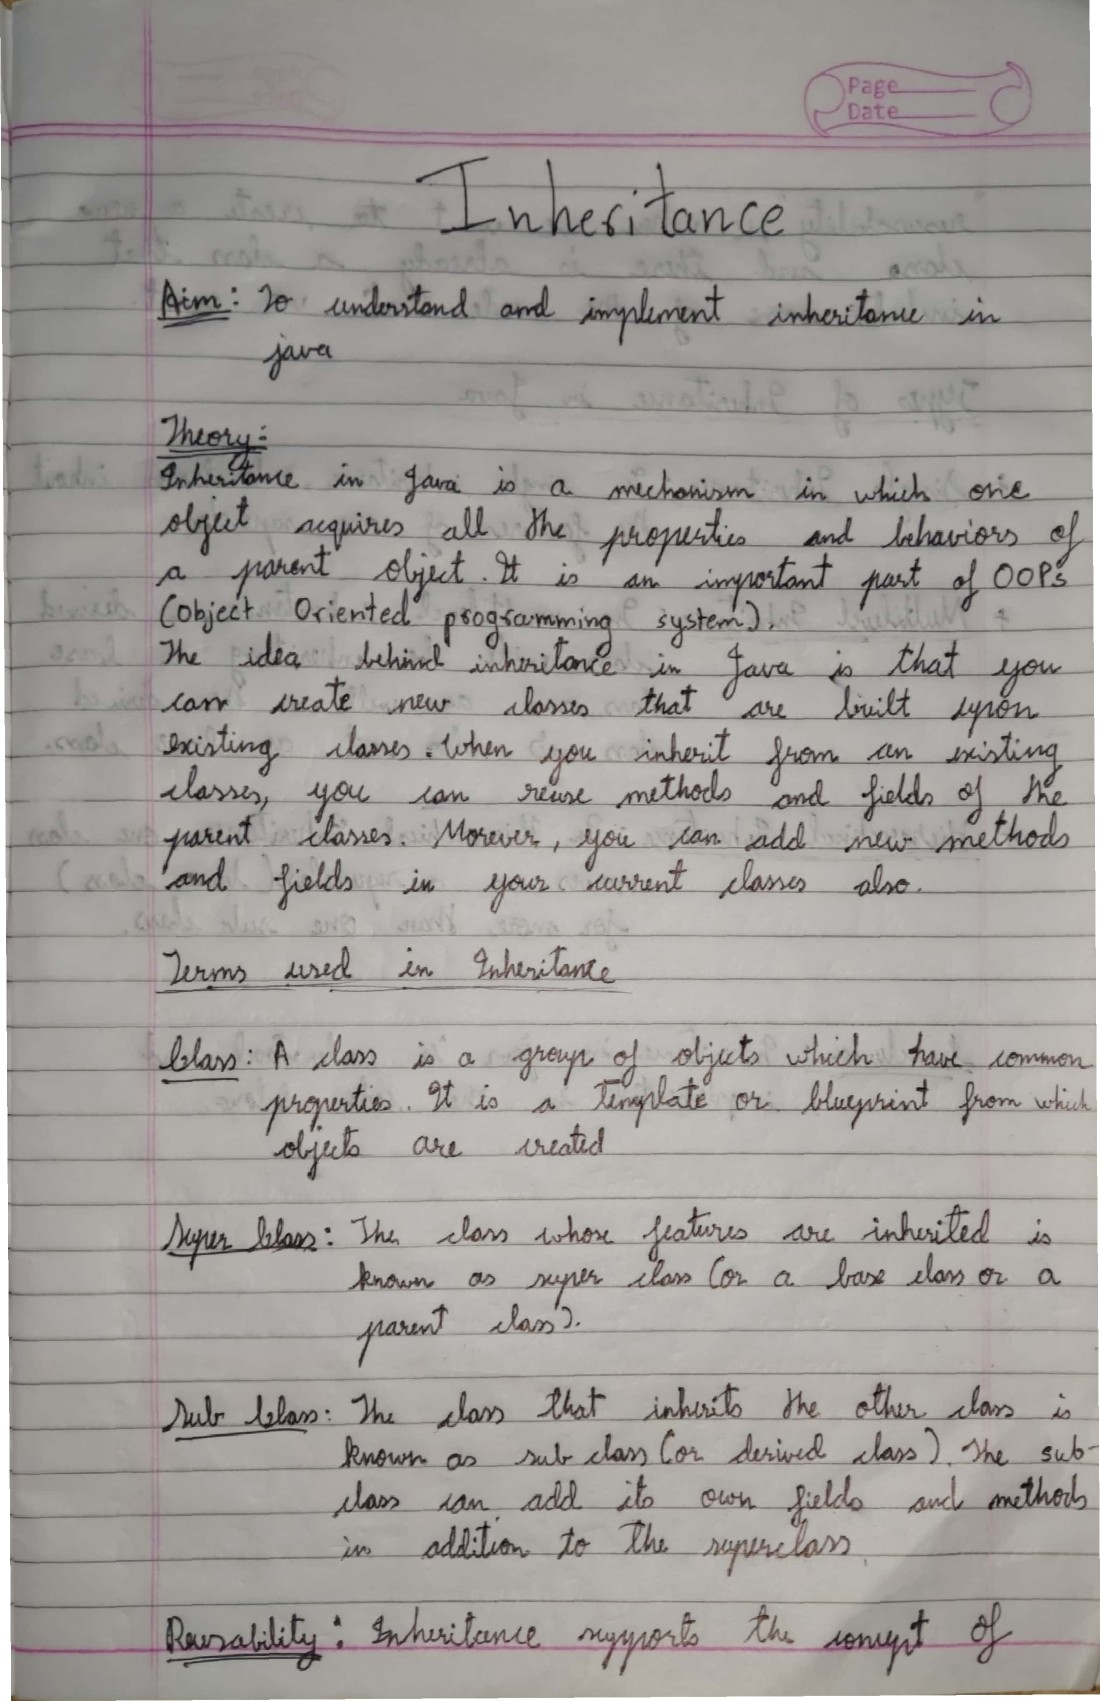 Page
Date
Inheritance
Aim: To understand and implement inheritance in
java
Theory:
Inheritance in Java is a mechanism in which one
object acquires all the properties and behaviors of
a parent object. It is an important part of OOPs
(Object Oriented programming system).
The idea behind inheritance in Java is that you
can create new classes that are built upon
existing classes. When you inherit from an existing
classes, you can reuse methods and fields of the
parent classes. Morever, you can add new methods
and fields in your current classes also.
Terms used in Inheritance
Class: A class is a group of objects which have common
properties. It is a template or blueprint from which
objects are created
Super Class: The class whose features are inherited is
known as super class (or a base class or a
parent class).
Sub Class: The class that inherits the other class is
known as sub class (or derived class). The sub-
class can add its own fields and methods
in addition to the superclass.
Reusability: Inheritance supports the concept of